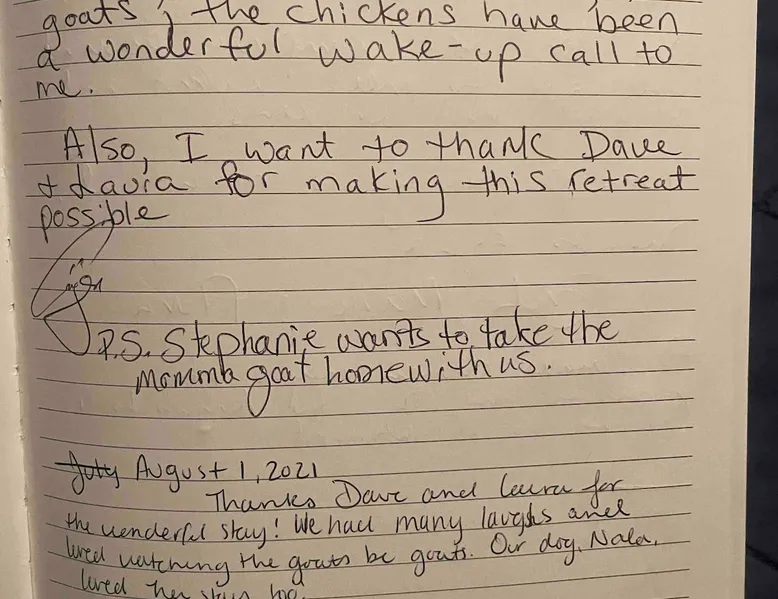 goats, the chickens have been
a wonderful wake-up call to
me.
Also, I want to thank Dave
+ Laura for making this retreat
possible
P.S. Stephanie wants to take the
Momma goat home with us.
July August 1, 2021
Thanks Dave and Laura for
the wonderful stay! We had many laughs and
loved watching the goats be goats. Our dog, Nala,
loved her stay too.